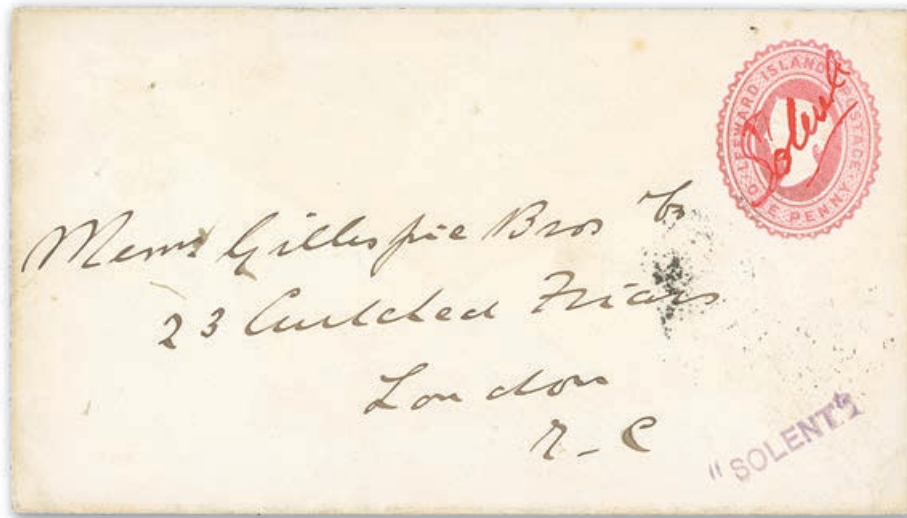 LEEWARD ISLANDS POSTAGE
ONE PENNY
Solent
Messrs Gillespie Bros Co
23 Crutched Friars
London
E-C
"SOLENT"